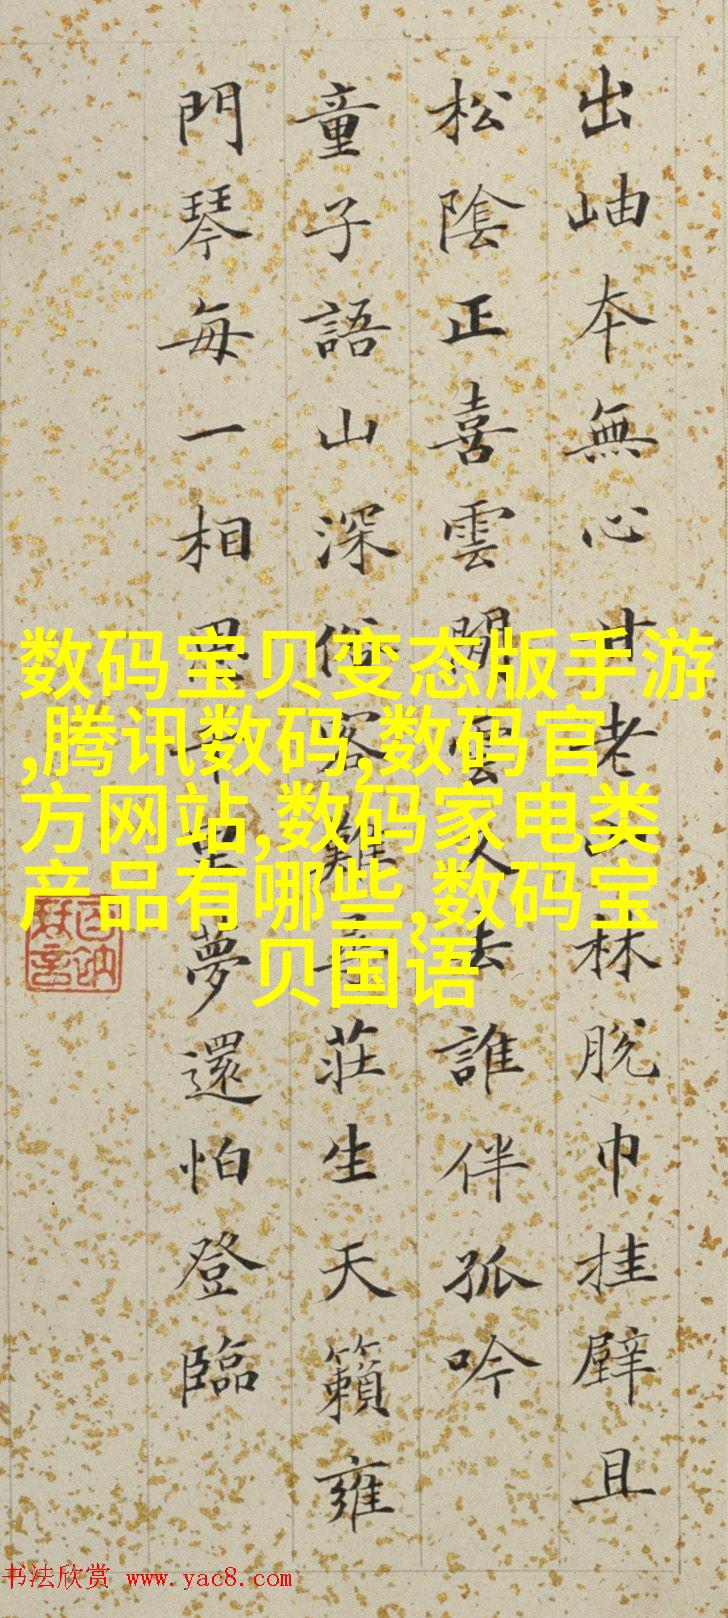 出岫本無心甘老山林脫巾挂壁且
松陰正喜雲閒雲又去誰伴孤吟
童子語山深俗客難尋莊生天籟雍
門琴每一相思千里夢還怕登臨
数码宝贝变态版手游
,腾讯数码,数码官
方网站,数码家电类
产品有哪些,数码宝
贝国语
书法欣赏 www.yac8.com